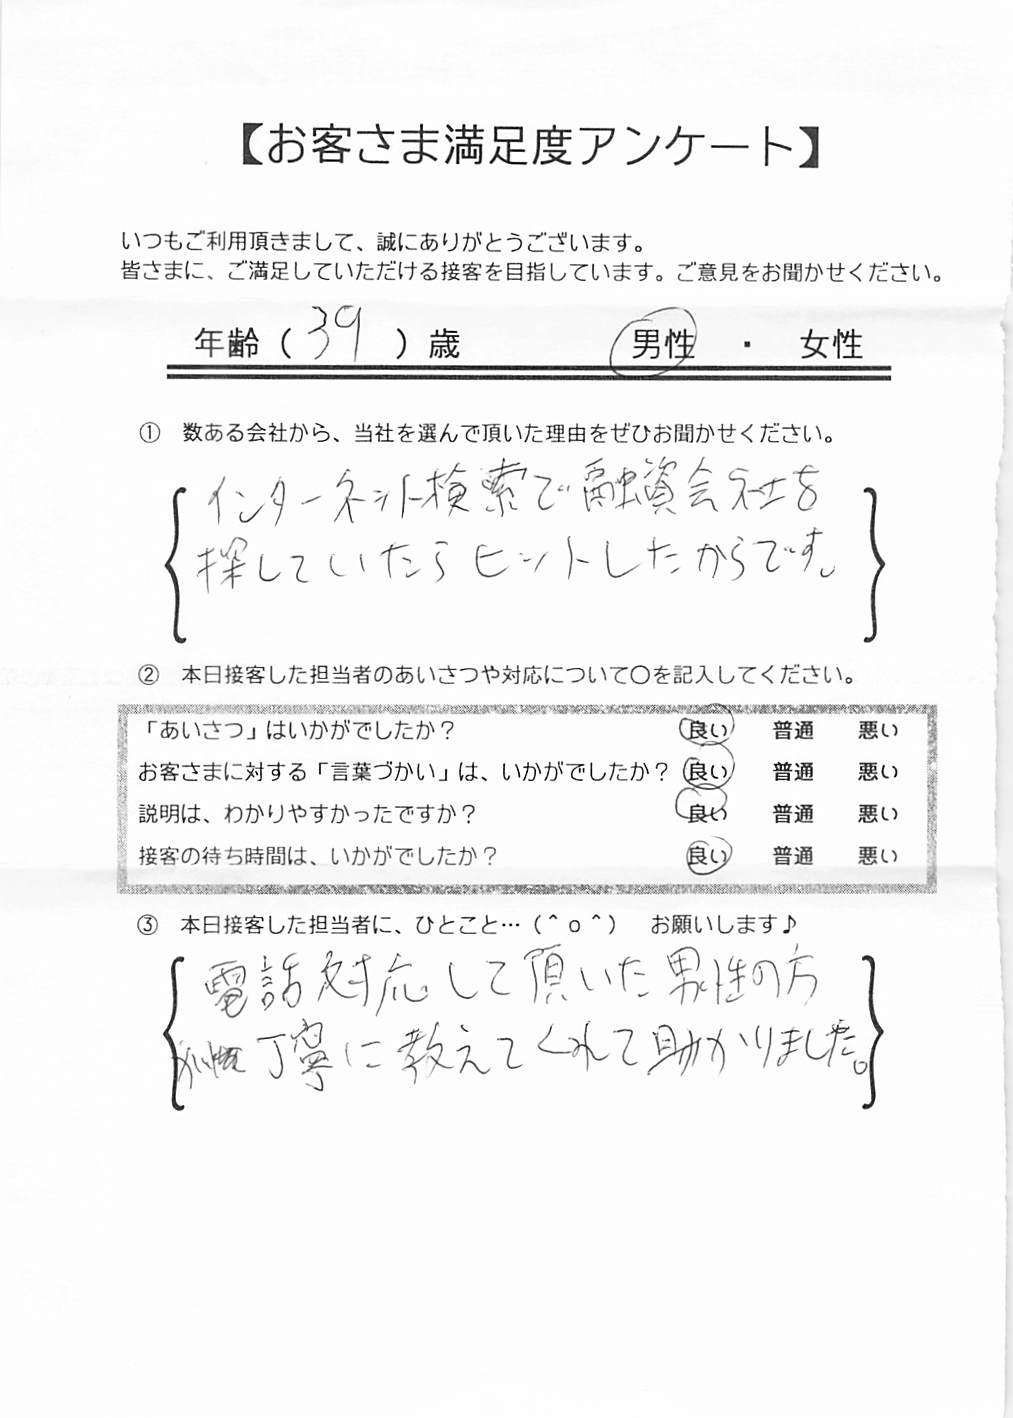 【お客さま満足度アンケート】
いつもご利用頂きまして、誠にありがとうございます。
皆さまに、ご満足していただける接客を目指しています。ご意見をお聞かせください。
年齢（ 39 ）歳 男性 ・ 女性
① 数ある会社から、当社を選んで頂いた理由をぜひお聞かせください。
インターネット検索で融資会社を
探していたらヒットしたからです。
② 本日接客した担当者のあいさつや対応について〇を記入してください。
「あいさつ」はいかがでしたか？ 良い 普通 悪い
お客さまに対する「言葉づかい」は、いかがでしたか？ 良い 普通 悪い
説明は、わかりやすかったですか？ 良い 普通 悪い
接客の待ち時間は、いかがでしたか？ 良い 普通 悪い
③ 本日接客した担当者に、ひとこと…（＾ｏ＾） お願いします♪
電話対応して頂いた男性の方
が 丁寧に教えてくれて助かりました。